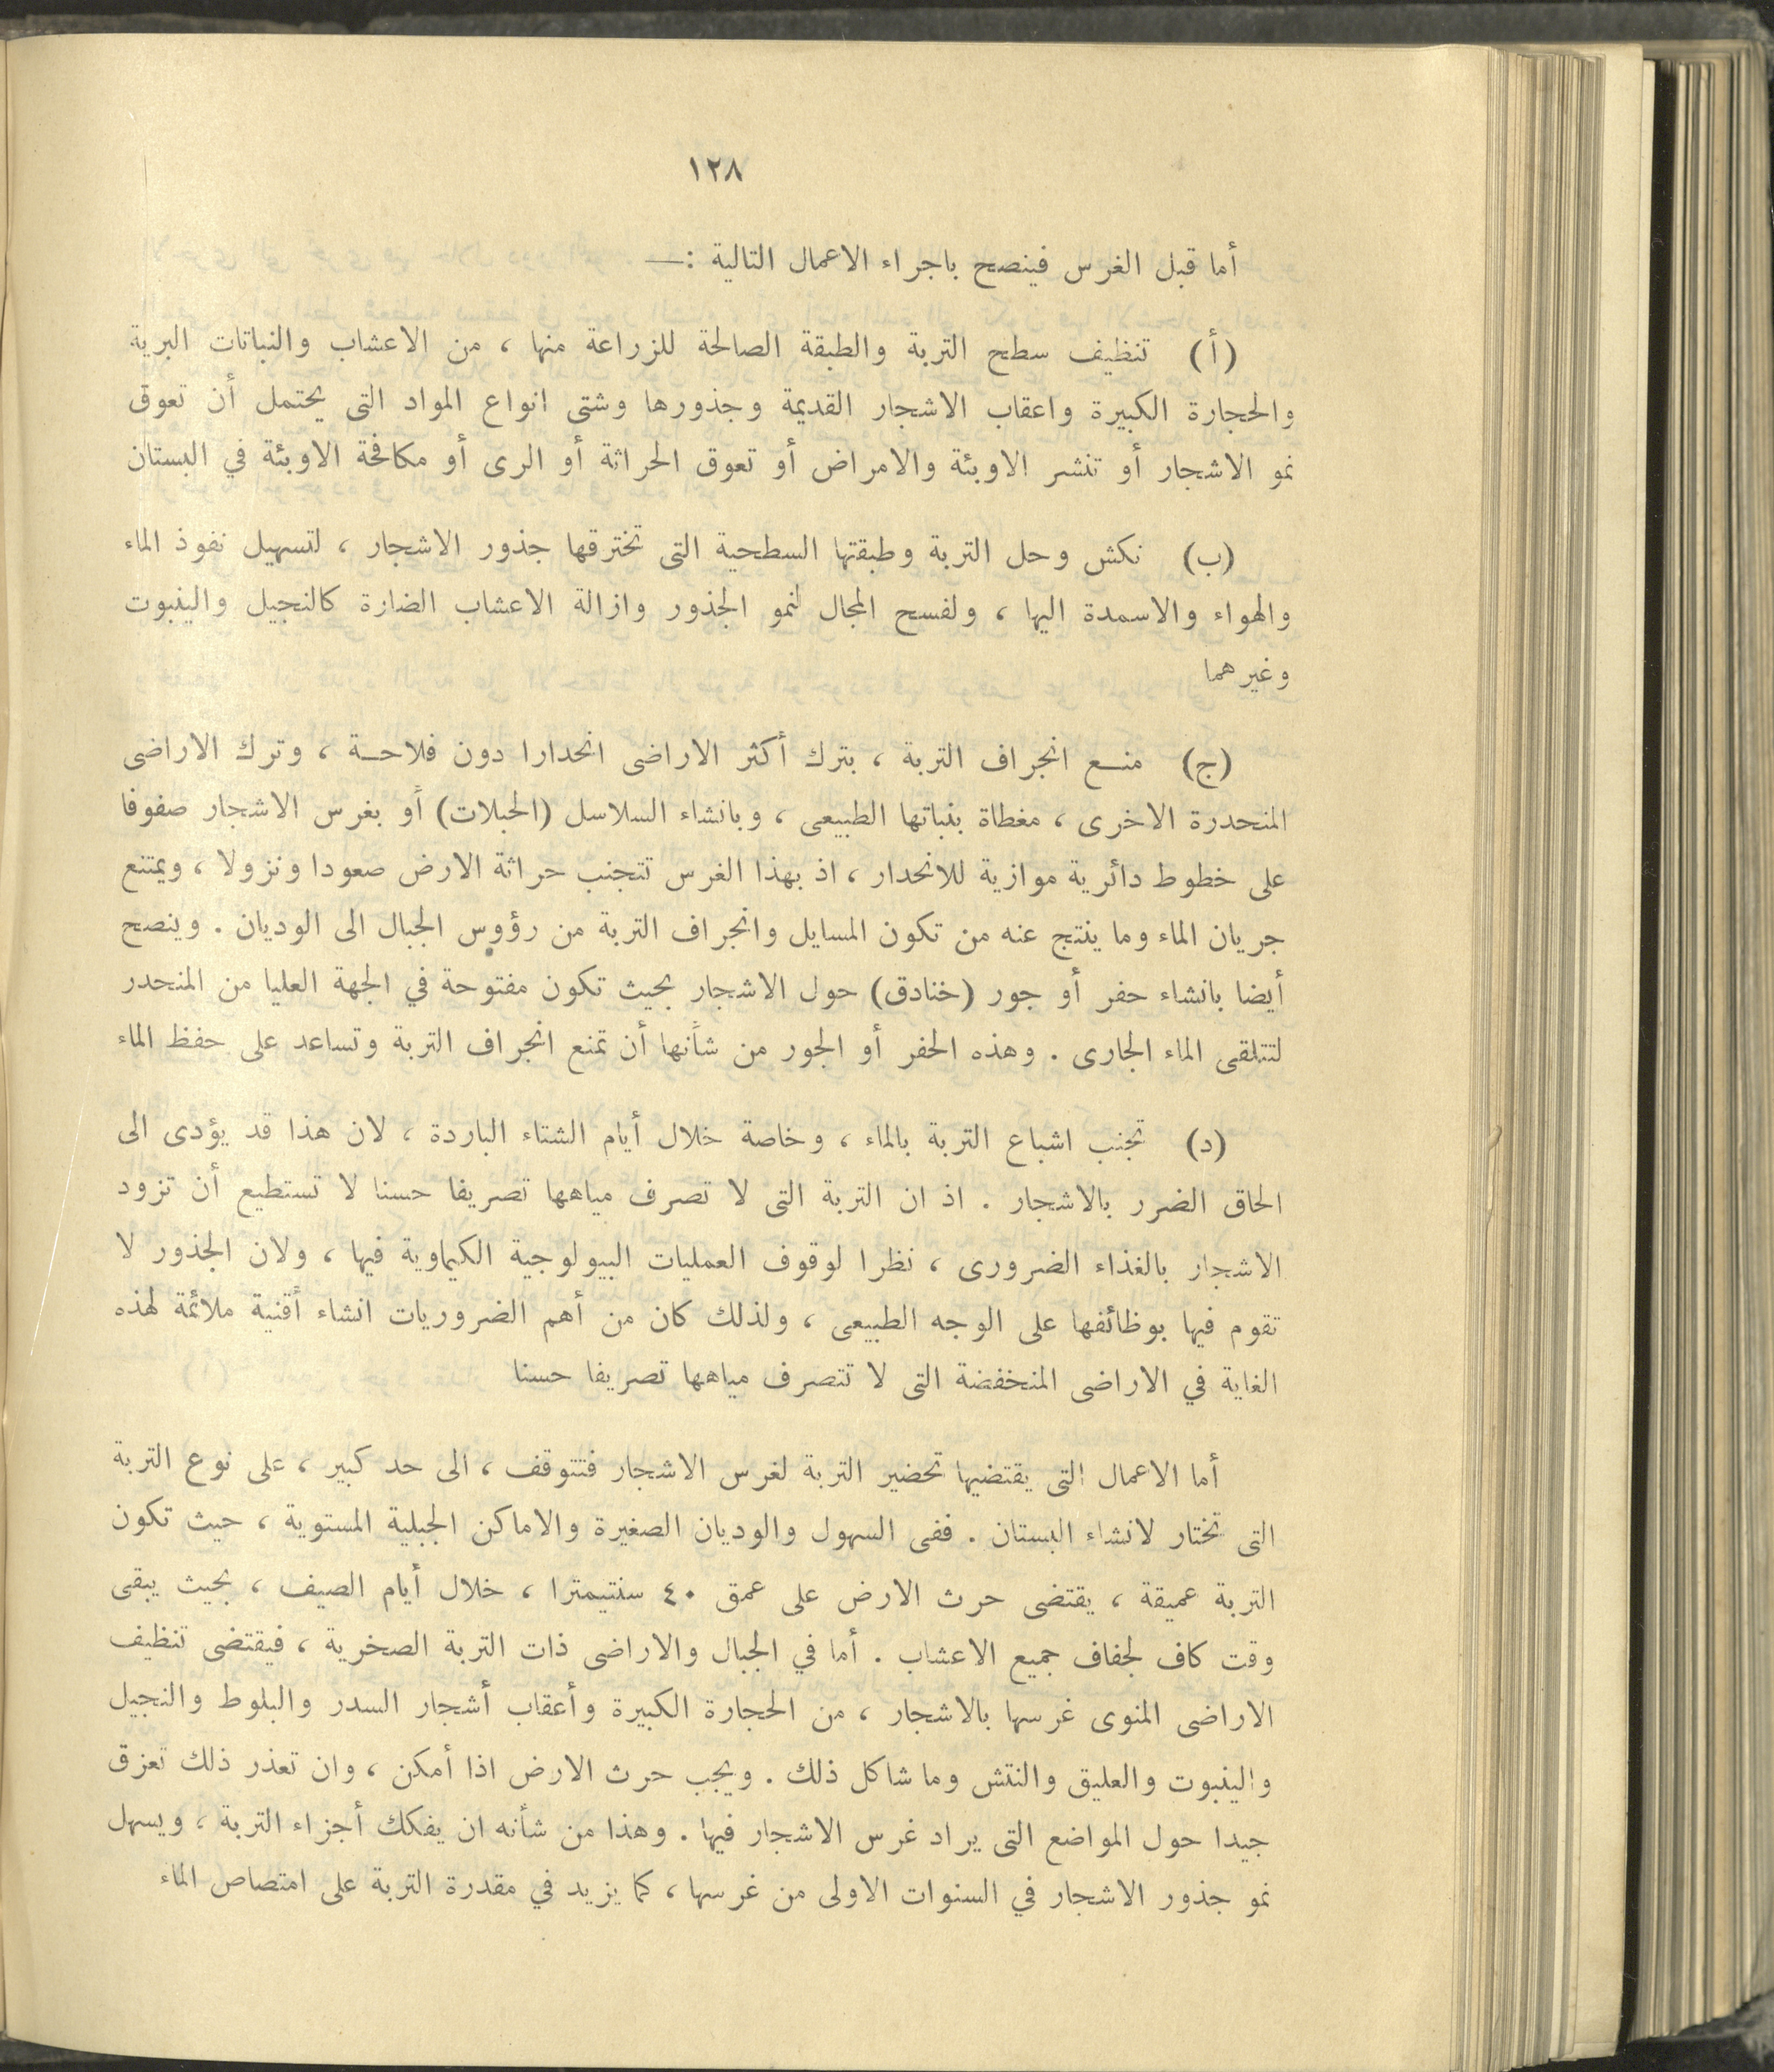 ١٢٨
أما قبل الغرس فينصح باجراء الاعمال التالية :—
(أ) تنظيف سطح التربة والطبقة الصالحة للزراعة منها ، من الاعشاب والنباتات البرية
والحجارة الكبيرة واعقاب الاشجار القديمة وجذورها وشتى انواع المواد التى يحتمل أن تعوق
نمو الاشجار أو تنشر الاوبئة والامراض أو تعوق الحراثة أو الرى أو مكافحة الاوبئة في البستان
(ب) نكش وحل التربة وطبقتها السطحية التى تخترقها جذور الاشجار ، لتسهيل نفوذ الماء
والهواء والاسمدة اليها ، ولفسح المجال لنمو الجذور وازالة الاعشاب الضارة كالنجيل والينبوت
وغيرهما
(ج) منـع انجراف التربة ، بترك أكثر الاراضى انحدارا دون فلاحـة ، وترك الاراضى
المنحدرة الاخرى ، مغطاة بنباتها الطبيعى ، وبانشاء السلاسل (الحبلات) أو بغرس الاشجار صفوفا
على خطوط دائرية موازية للانحدار ، اذ بهذا الغرس تتجنب حراثة الارض صعودا ونزولا ، ويمتنع
جريان الماء وما ينتج عنه من تكون المسايل وانجراف التربة من رؤوس الجبال الى الوديان . وينصح
أيضا بانشاء حفر أو جور (خنادق) حول الاشجار بحيث تكون مفتوحة في الجهة العليا من المنحدر
لتتلقى الماء الجارى . وهذه الحفر أو الجور من شأنها أن تمنع انجراف التربة وتساعد على حفظ الماء
(د) تجنب اشباع التربة بالماء ، وخاصة خلال أيام الشتاء الباردة ، لان هذا قد يؤدى الى
الحاق الضرر بالاشجار . اذ ان التربة التى لا تصرف مياهها تصريفا حسنا لا تستطيع أن تزود
الاشجار بالغذاء الضرورى ، نظرا لوقوف العمليات البيولوجية الكيماوية فيها ، ولان الجذور لا
تقوم فيها بوظائفها على الوجه الطبيعى ، ولذلك كان من أهم الضروريات انشاء أقنية ملائمة لهذه
الغاية في الاراضى المنخفضة التى لا تتصرف مياهها تصريفا حسنا
أما الاعمال التى يقتضيها تحضير التربة لغرس الاشجار فتتوقف ، الى حد كبير ، على نوع التربة
التى تختار لانشاء البستان . ففى السهول والوديان الصغيرة والاماكن الجبلية المستوية ، حيث تكون
التربة عميقة ، يقتضى حرث الارض على عمق ٤٠ سنتيمترا ، خلال أيام الصيف ، بحيث يبقى
وقت كاف لجفاف جميع الاعشاب . أما في الجبال والاراضى ذات التربة الصخرية ، فيقتضى تنظيف
الاراضى المنوى غرسها بالاشجار ، من الحجارة الكبيرة وأعقاب أشجار السدر والبلوط والنجيل
والينبوت والعليق والنتش وما شاكل ذلك . ويجب حرث الارض اذا أمكن ، وان تعذر ذلك تعزق
جيدا حول المواضع التى يراد غرس الاشجار فيها . وهذا من شأنه ان يفكك أجزاء التربة ، ويسهل
نمو جذور الاشجار في السنوات الاولى من غرسها ، كما يزيد في مقدرة التربة على امتصاص الماء